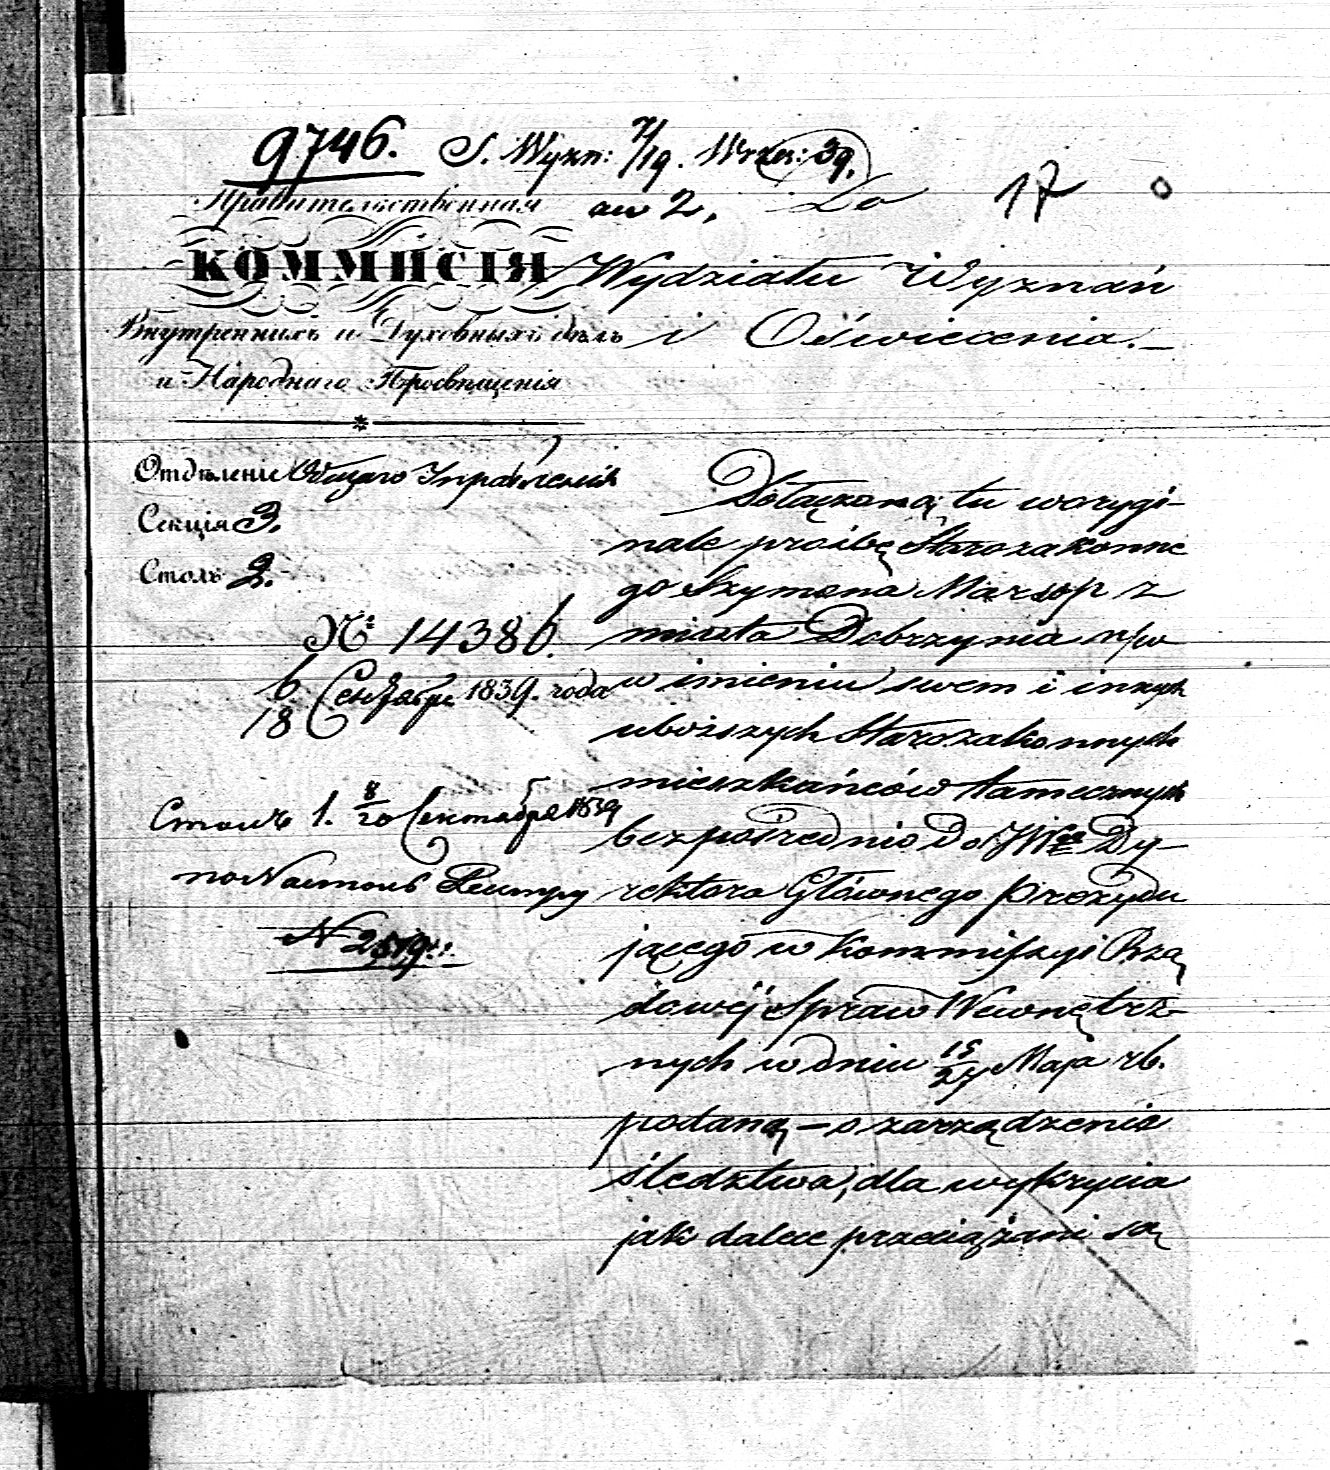 9746. S. Wyzn: 7/19. Wrzes: 39.
an 2,
17
Правительственная
КОММИСІЯ
Внутреннихъ и Духовныхъ дѣлъ
и Народнаго Просвѣщенія
Отдѣленіе Общаго Управленія
Секція 3.
Столъ 2.
№ 14386.
6/18 Сентября 1839. года
Столъ 1. 8/20 Сентября 1839
по Реэстру
N 2519
Do
Wydziału Wyznań
i Oświecenia.
Dołączoną tu w orygi-
nale prośbę Starozakonne
go Szymona Marsop z
miasta Dobrzynia n/w
w imieniu swem i innych
uboższych Starozakonnych
mieszkańców tamecznych
bezpośrednio do JWgo Dy-
rektora Głównego prezydu
jącego w Kommissyi Rzą
dowéj Spraw Wewnętrz-
nych w dniu 15/27 Maja rb.
podaną – o zarządzenie
śledztwa, dla wykrycia
jak dalece przeciążani są